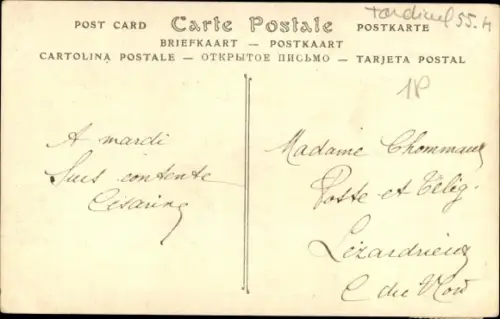 POST CARD Carte Postale POSTKARTE
BRIEFKAART — POSTKAART
CARTOLINA POSTALE — ОТКРЫТОЕ ПИСЬМО — TARJETA POSTAL
55.4
1P
A mardi
Suis contente
Césarine
Madame Chommaux
Poste et Télég.
Lézardrieux
C du Nord